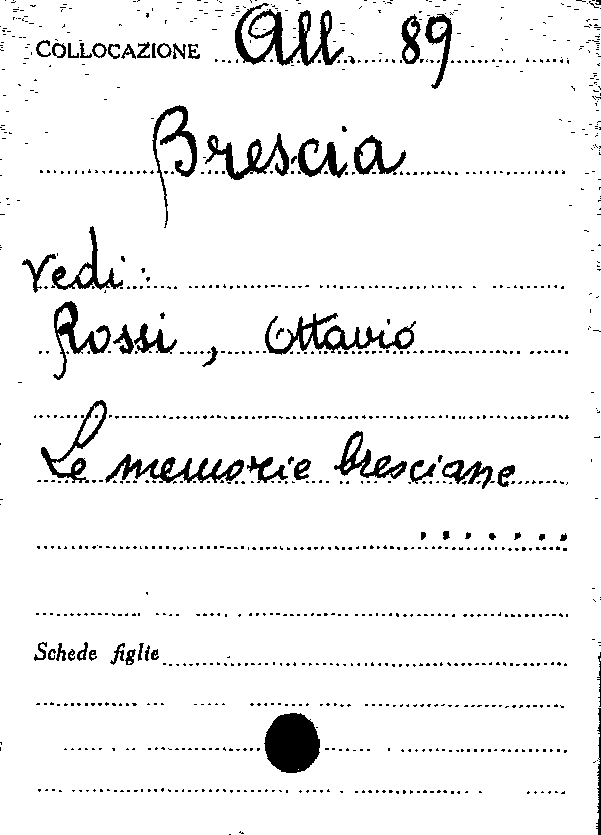 COLLOCAZIONE All. 89
Brescia
vedi:
Rossi, Ottavio
Le memorie bresciane
.......
Schede figlie